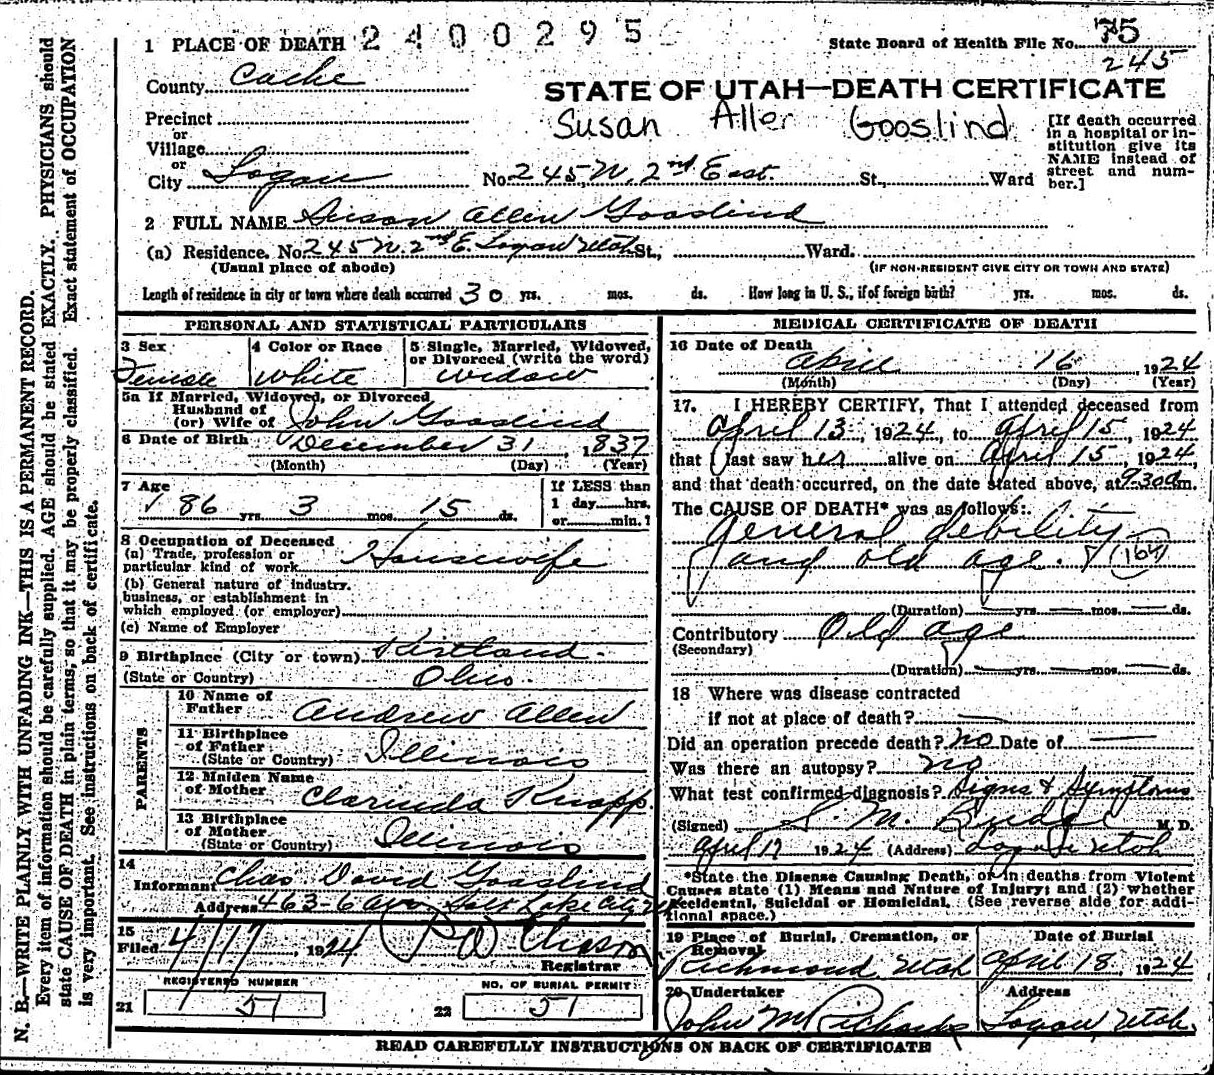 N. B.—WRITE PLAINLY WITH UNFADING INK—THIS IS A PERMANENT RECORD.
Every item of information should be carefully supplied. AGE should be stated EXACTLY. PHYSICIANS should
state CAUSE OF DEATH in plain terms, so that it may be properly classified. Exact statement of OCCUPATION
is very important. See instructions on back of certificate.
1 PLACE OF DEATH 2400295
State Board of Health File No. 75
245
County Cache
STATE OF UTAH—DEATH CERTIFICATE
Susan Allen Gooslind
[If death occurred
in a hospital or in-
stitution give its
NAME instead of
street and num-
ber.]
Precinct
or
Village
or
City Logan No. 245 N. 2nd East St., Ward
2 FULL NAME Susan Allen Goaslind
(a) Residence. No. 245 N. 2nd E. Logan Utah St., Ward.
(Usual place of abode) (IF NON-RESIDENT GIVE CITY OR TOWN AND STATE)
Length of residence in city or town where death occurred 30 yrs. mos. ds. How long in U. S., if of foreign birth? yrs. mos. ds.
PERSONAL AND STATISTICAL PARTICULARS
3 Sex 4 Color or Race 5 Single, Married, Widowed,
or Divorced (write the word)
Female White Widow
5a If Married, Widowed, or Divorced
Husband of
(or) Wife of John Goaslind
6 Date of Birth December 31, 1837
(Month) (Day) (Year)
7 Age If LESS than
1 day hrs.
or min. ?
86 yrs. 3 mos. 15 ds.
8 Occupation of Deceased
(a) Trade, profession or
particular kind of work Housewife
(b) General nature of industry,
business, or establishment in
which employed (or employer)
(c) Name of Employer
9 Birthplace (City or town) Kirtland
(State or Country) Ohio.
PARENTS
10 Name of
Father Andrew Allen
11 Birthplace
of Father
(State or Country) Illinois
12 Maiden Name
of Mother Clarinda Knapp.
13 Birthplace
of Mother
(State or Country) Illinois
14
Informant Chas David Goaslind
Address 463-6 Ave Salt Lake City
15
Filed 4/17, 1924
Registrar
REGISTERED NUMBER NO. OF BURIAL PERMIT
21 51 22 51
MEDICAL CERTIFICATE OF DEATH
16 Date of Death
April 16, 1924
(Month) (Day) (Year)
17. I HEREBY CERTIFY, That I attended deceased from
April 13, 1924, to April 15, 1924
that I last saw her alive on April 15, 1924,
and that death occurred, on the date stated above, at 9:30 a m.
The CAUSE OF DEATH* was as follows:
General debility
and old age. (164)
(Duration) — yrs. — mos. — ds.
Contributory Old age
(Secondary)
(Duration) — yrs. — mos. — ds.
18 Where was disease contracted
if not at place of death? —
Did an operation precede death? no Date of —
Was there an autopsy? no
What test confirmed diagnosis? Signs & Symptoms
(Signed) S. M. Budge M. D.
April 17 1924 (Address) Logan Utah
*State the Disease Causing Death, or in deaths from Violent
Causes state (1) Means and Nature of Injury; and (2) whether
Accidental, Suicidal or Homicidal. (See reverse side for addi-
tional space.)
19 Place of Burial, Cremation, or
Removal Date of Burial
Richmond Utah April 18, 1924
20 Undertaker Address
John M Richards Logan, Utah.
READ CAREFULLY INSTRUCTIONS ON BACK OF CERTIFICATE